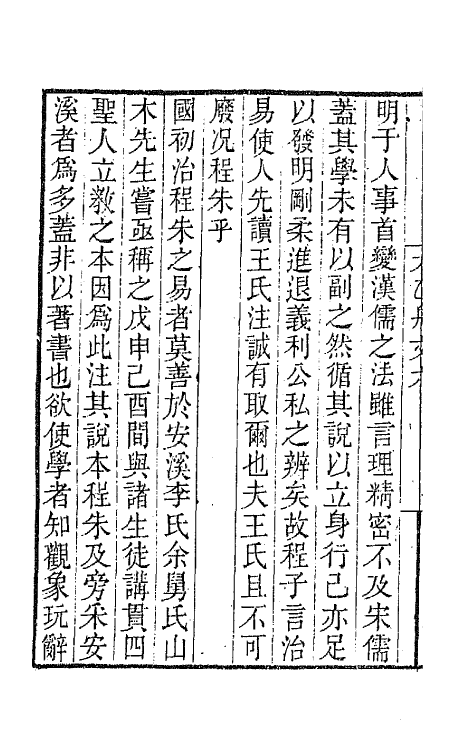 明于人事首變漢儒之法雖言理精密不及宋儒
蓋其學未有以副之然循其說以立身行己亦足
以發明剛柔進退義利公私之辨矣故程子言治
易使人先讀王氏注誠有取爾也夫王氏且不可
廢况程朱乎
國初治程朱之易者莫善於安溪李氏余舅氏山
木先生嘗亟稱之戊申己酉間與諸生徒講貫四
聖人立教之本因爲此注其說本程朱及旁采安
溪者爲多蓋非以著書也欲使學者知觀象玩辭